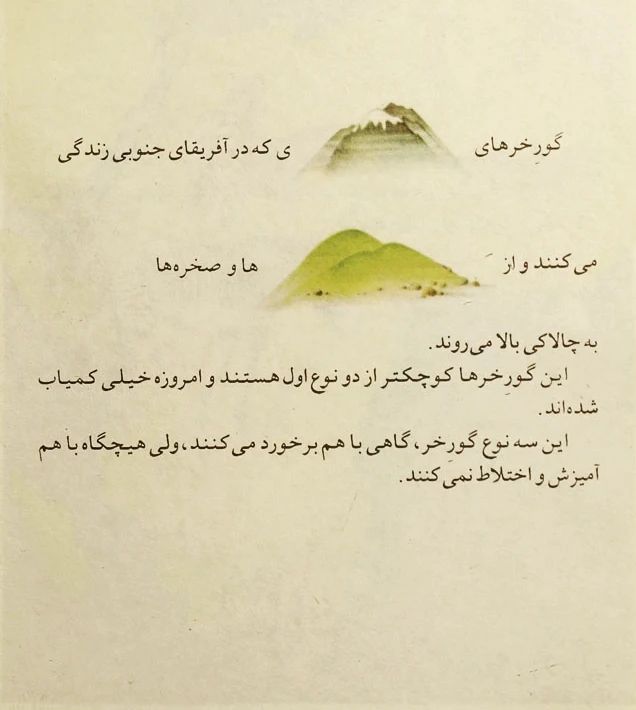 گورِخرهای ی که در آفریقای جنوبی زندگی
می‌کنند و از ها و صخره‌ها
به چالاکی بالا می‌روند.
این گورِخرها کوچکتر از دو نوع اول هستند و امروزه خیلی کمیاب
شده‌اند.
این سه نوع گورِخر، گاهی با هم برخورد می‌کنند، ولی هیچگاه با هم
آمیزش و اختلاط نمی‌کنند.